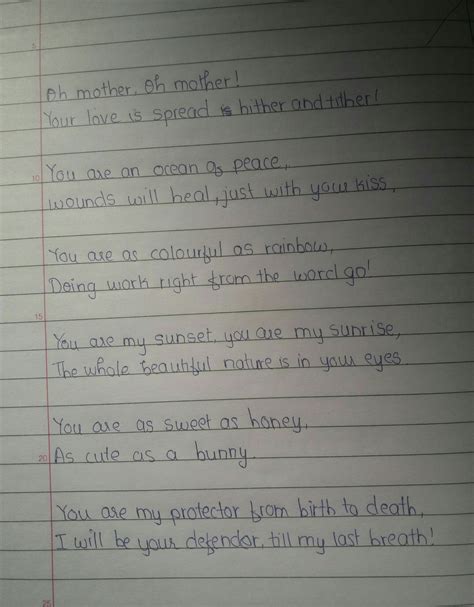 5
Oh mother, Oh mother!
Your love is spread is hither and tither!
10 You are an ocean of peace,
wounds will heal, just with your kiss,
You are as colourful as rainbow,
Doing work right from the word go!
15
You are my sunset, you are my sunrise,
The whole beautiful nature is in your eyes.
You are as sweet as honey,
20 As cute as a bunny.
You are my protector from birth to death,
I will be your defendor, till my last breath!
25